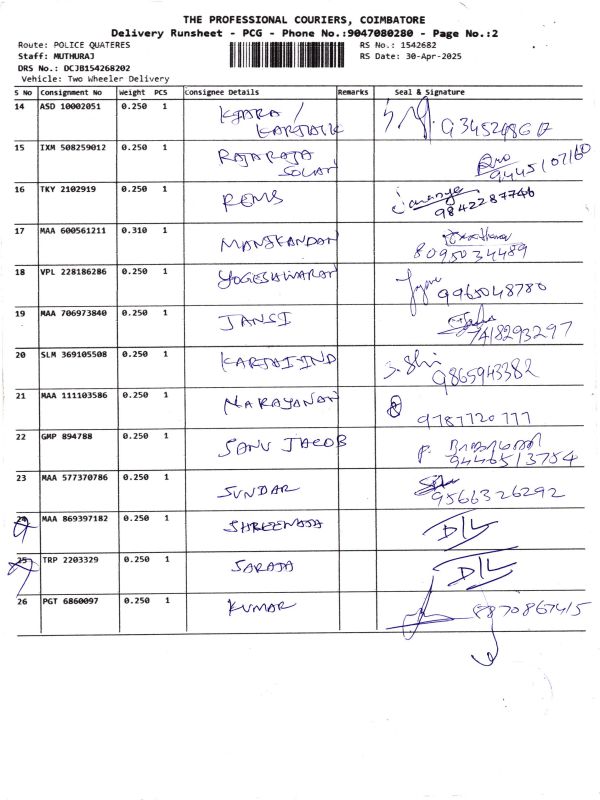 THE PROFESSIONAL COURIERS, COIMBATORE
Delivery Runsheet - PCG - Phone No.:9047080280 - Page No.:2
Route: POLICE QUATERES
RS No.: 1542682
Staff: MUTHURAJ
RS Date: 30-Apr-2025
DRS No.: DCJB154268202
Vehicle: Two Wheeler Delivery
S No Consignment No Weight PCS Consignee Details Remarks Seal & Signature
14 ASD 10002051 0.250 1
KARTHIK
15 IXM 508259012 0.250 1 RAJARAJA
SOLAN 9445107160
16 TKY 2102919 0.250 1 REMS
9842287746
17 MAA 600561211 0.310 1 MANIKANDAN
8095034489
18 VPL 228186286 0.250 1 YOGESHWARAN 9965048780
19 MAA 706973840 0.250 1 JANSI
7418293297
20 SLM 369105508 0.250 1 9865943382
21 MAA 111103586 0.250 1 NARAYANAN 9787720777
22 GMP 894788 0.250 1 SANU JACOB
9446513754
23 MAA 577370786 0.250 1 SUNDAR 9566326292
24 MAA 869397182 0.250 1 D/L
25 TRP 2203329 0.250 1 SARAJA D/L
26 PGT 6860097 0.250 1 KUMAR 8870867415